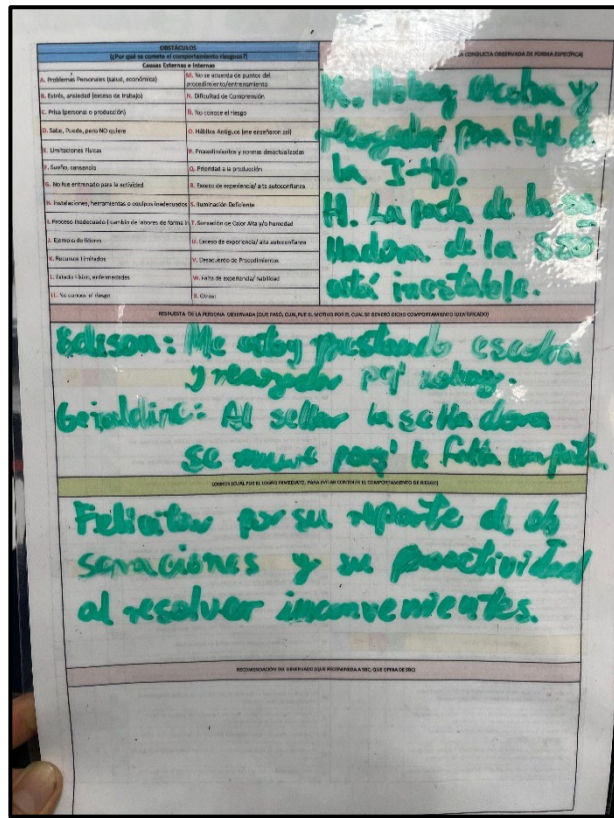 OBSTÁCULOS
(¿Por qué se comete el comportamiento riesgoso?)
Causas Externas e Internas
A. Problemas Personales (salud, económica)
M. No se acuerda de puntos del procedimiento/entrenamiento
B. Estrés, ansiedad (exceso de trabajo)
N. Dificultad de Comprensión
C. Prisa (personal o producción)
Ñ. No conoce el riesgo
D. Sabe, Puede, pero NO quiere
O. Hábitos Antiguos (me enseñaron así)
E. Limitaciones Físicas
P. Procedimientos y normas desactualizadas
F. Sueño, cansancio
Q. Prioridad a la producción
G. No fue entrenado para la actividad
R. Exceso de experiencia/ alta autoconfianza
H. Instalaciones, herramientas o equipos inadecuados
S. Iluminación Deficiente
I. Proceso inadecuado ( cambio de labores de forma in
T. Sensación de Calor Alta y/o humedad
J. Ejemplo de líderes
U. Exceso de experiencia/ alta autoconfianza
K. Recursos Limitados
V. Desacuerdo de Procedimientos
L. Estado Físico, enfermedades
W. Falta de experiencia/ habilidad
LL. No conoce el riesgo
X. Otros:
CONDUCTA OBSERVADA DE FORMA ESPECÍFICA)
K. No hay escoba y
recogedor para
la I-40.
H. La pata de la se
lladora de la
está inestable.
RESPUESTA DE LA PERSONA OBSERVADA (QUE PASÓ, CUAL FUE EL MOTIVO POR EL CUAL SE GENERÓ DICHO COMPORTAMIENTO IDENTIFICADO)
Edison: Me estoy prestando escoba
y recogedor no hay.
Geraldine: Al sellar la selladora
se mueve le falta una pata.
Felicitar por su reporte de ob
servaciones y su proactividad
al resolver inconvenientes.